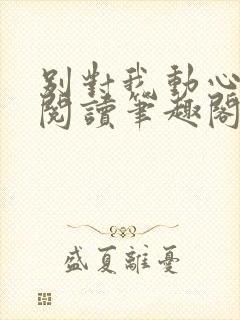 别對我動心
閱讀筆趣閣
盛夏離憂